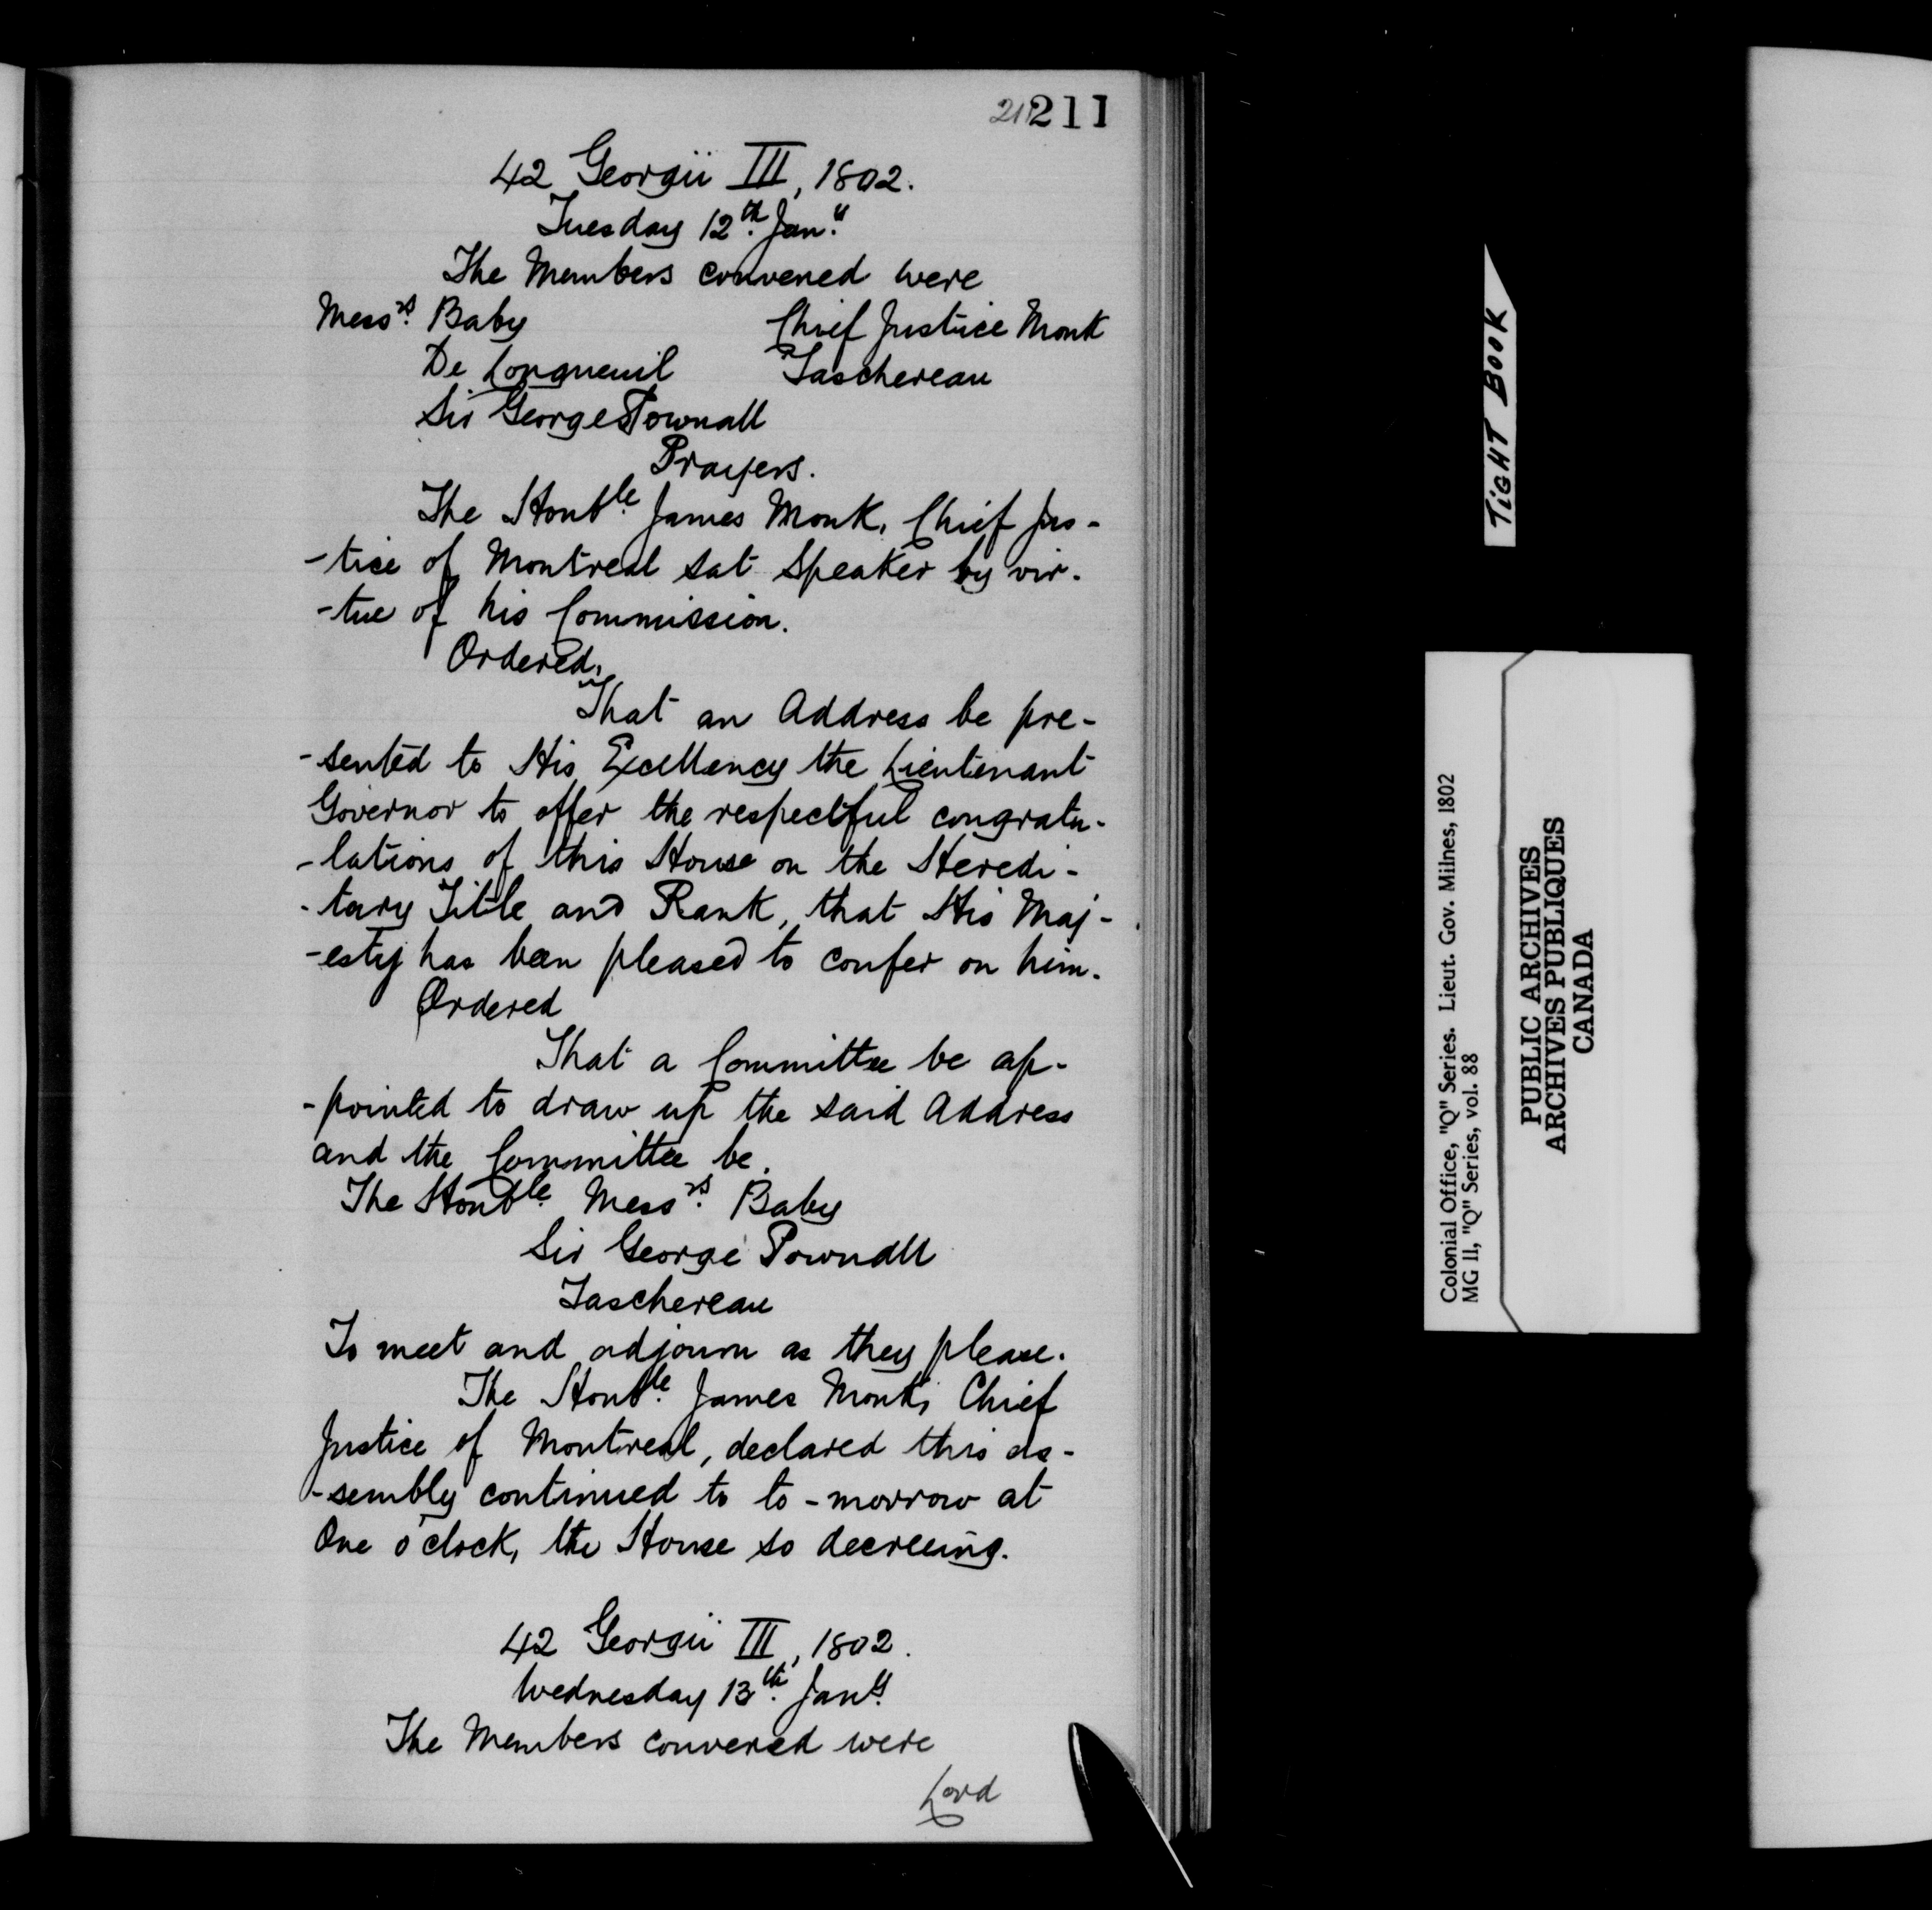 211 211
42 Georgii III, 1802.
Tuesday 12th. Jany.
The Members convened were
Messrs. Baby Chief Justice Monk
De Longueuil Taschereau
Sir George Pownall
Prayers.
The Honble. James Monk, Chief Jus-
-tice of Montreal sat Speaker by vir-
-tue of his Commission.
Ordered,
That an Address be pre-
-sented to His Excellency the Lieutenant
Governor to offer the respectful congratu-
-lations of this House on the Heredi-
-tary Title and Rank, that His Maj-
-esty has been pleased to confer on him.
Ordered
That a Committee be ap-
-pointed to draw up the said Address
and the Committee be.
The Honble. Messrs. Baby
Sir George Pownall
Taschereau
To meet and adjourn as they please.
The Honble. James Monk, Chief
Justice of Montreal, declared this as-
-sembly continued to to-morrow at
One o'clock, the House so decreeing.
42 Georgii III, 1802.
Wednesday 13th. Jany.
The Members convened were
Lord
TIGHT BOOK
Colonial Office, "Q" Series. Lieut. Gov. Milnes, 1802
MG 11, "Q" Series, vol. 88
PUBLIC ARCHIVES
ARCHIVES PUBLIQUES
CANADA